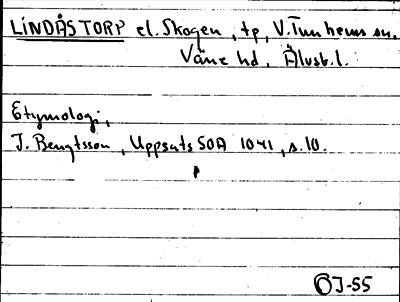 LINDÅSTORP el. Skogen, tp, V. Tunhems sn.
Väne hd, Älvsb. l.
Etymologi,
J. Bengtsson, Uppsats SOA 1041, s. 10.
OJ-55